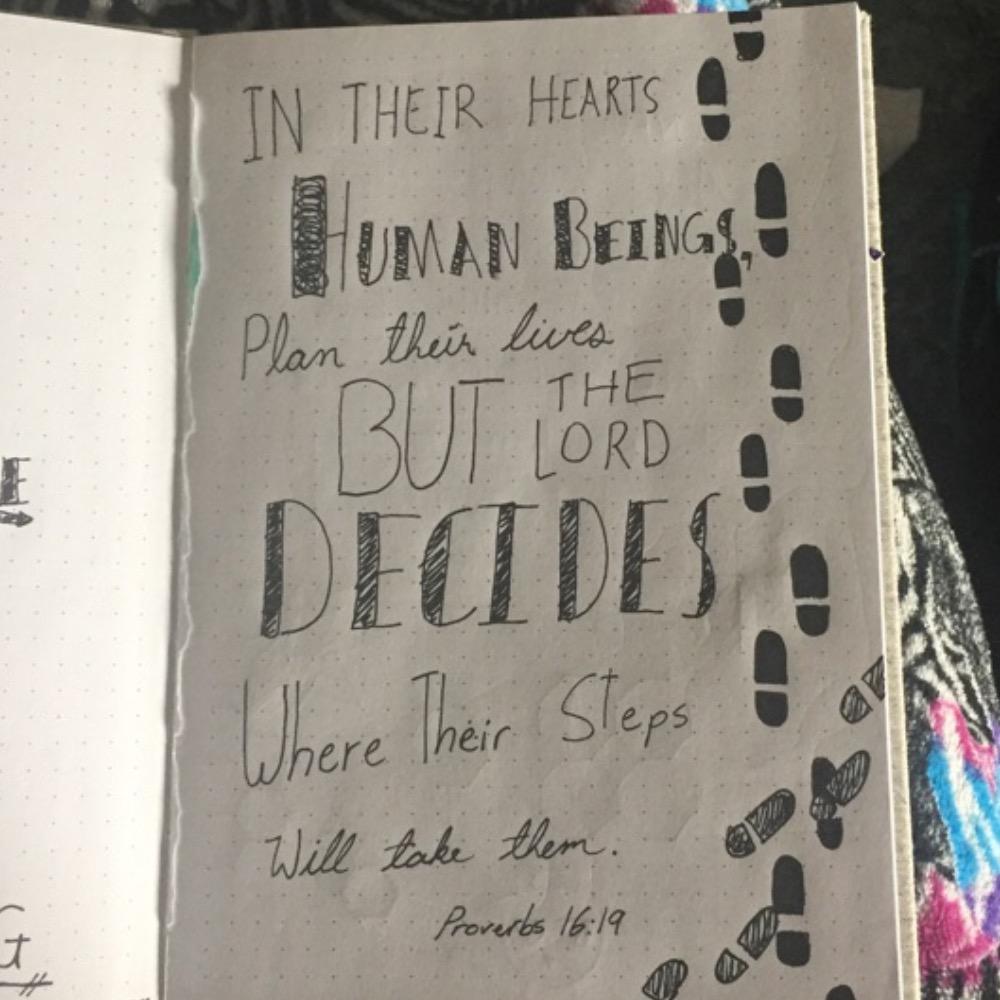 E
G
IN THEIR HEARTS
HUMAN BEINGS,
Plan their lives
BUT THE LORD
DECIDES
Where Their Steps
Will take them.
Proverbs 16:19